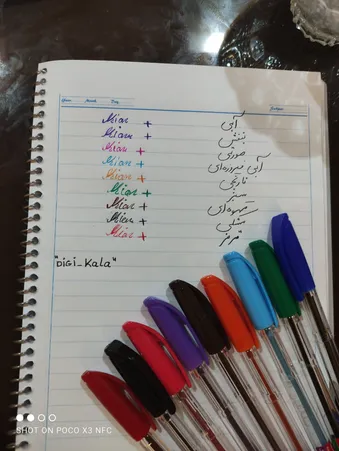 Mian + آبی
Mian + بنفش
Mian + صورتی
Mian + آبی فیروزه‌ای
Mian + نارنجی
Mian + سبز
Mian + قهوه‌ای
Mian + مشکی
Mian + قرمز
"DIGI_KALA"
SHOT ON POCO X3 NFC